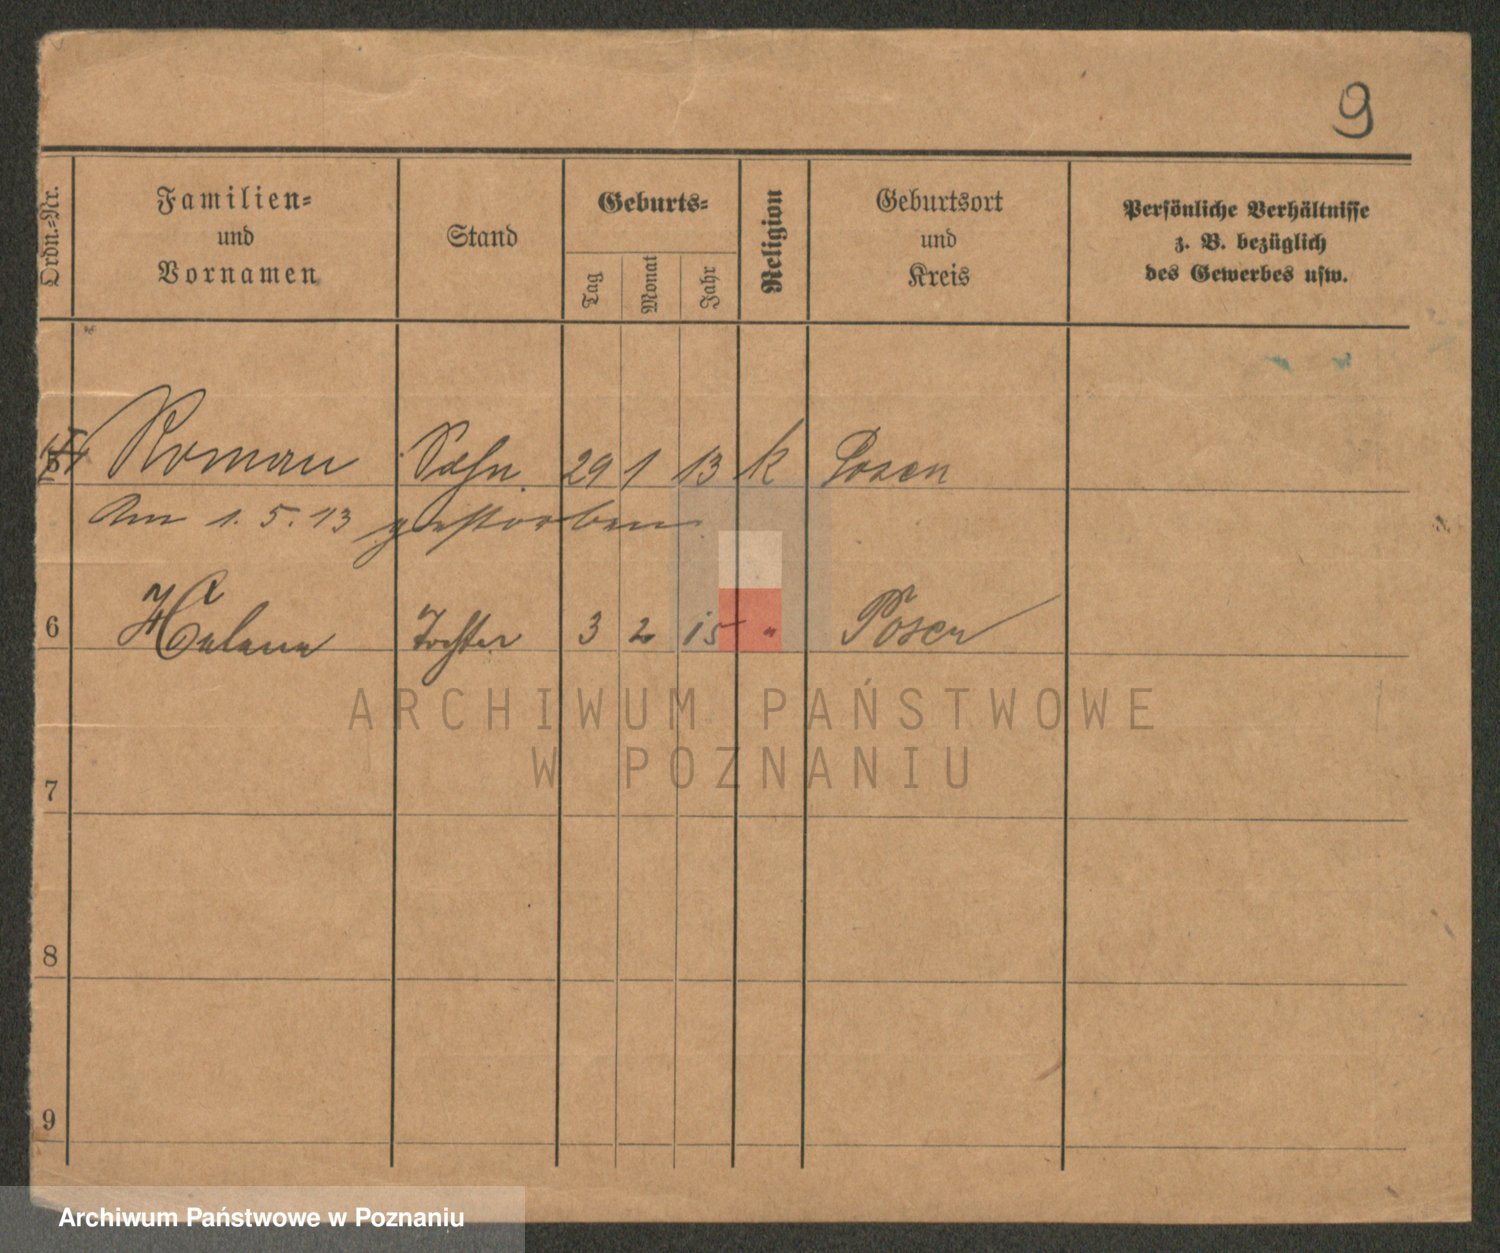 9
Ordn.-Nr.
Familien-
und
Vornamen
Stand
Geburts-
Tag
Monat
Jahr
Religion
Geburtsort
und
Kreis
Persönliche Verhältnisse
z. B. bezüglich
des Gewerbes usw.
5 Roman Sohn. 29 1 13 k Posen
Am 1. 5. 13 gestorben
6 Helene Tochter 3 2 15 " Posen
7
8
9
ARCHIWUM PAŃSTWOWE
W POZNANIU
Archiwum Państwowe w Poznaniu